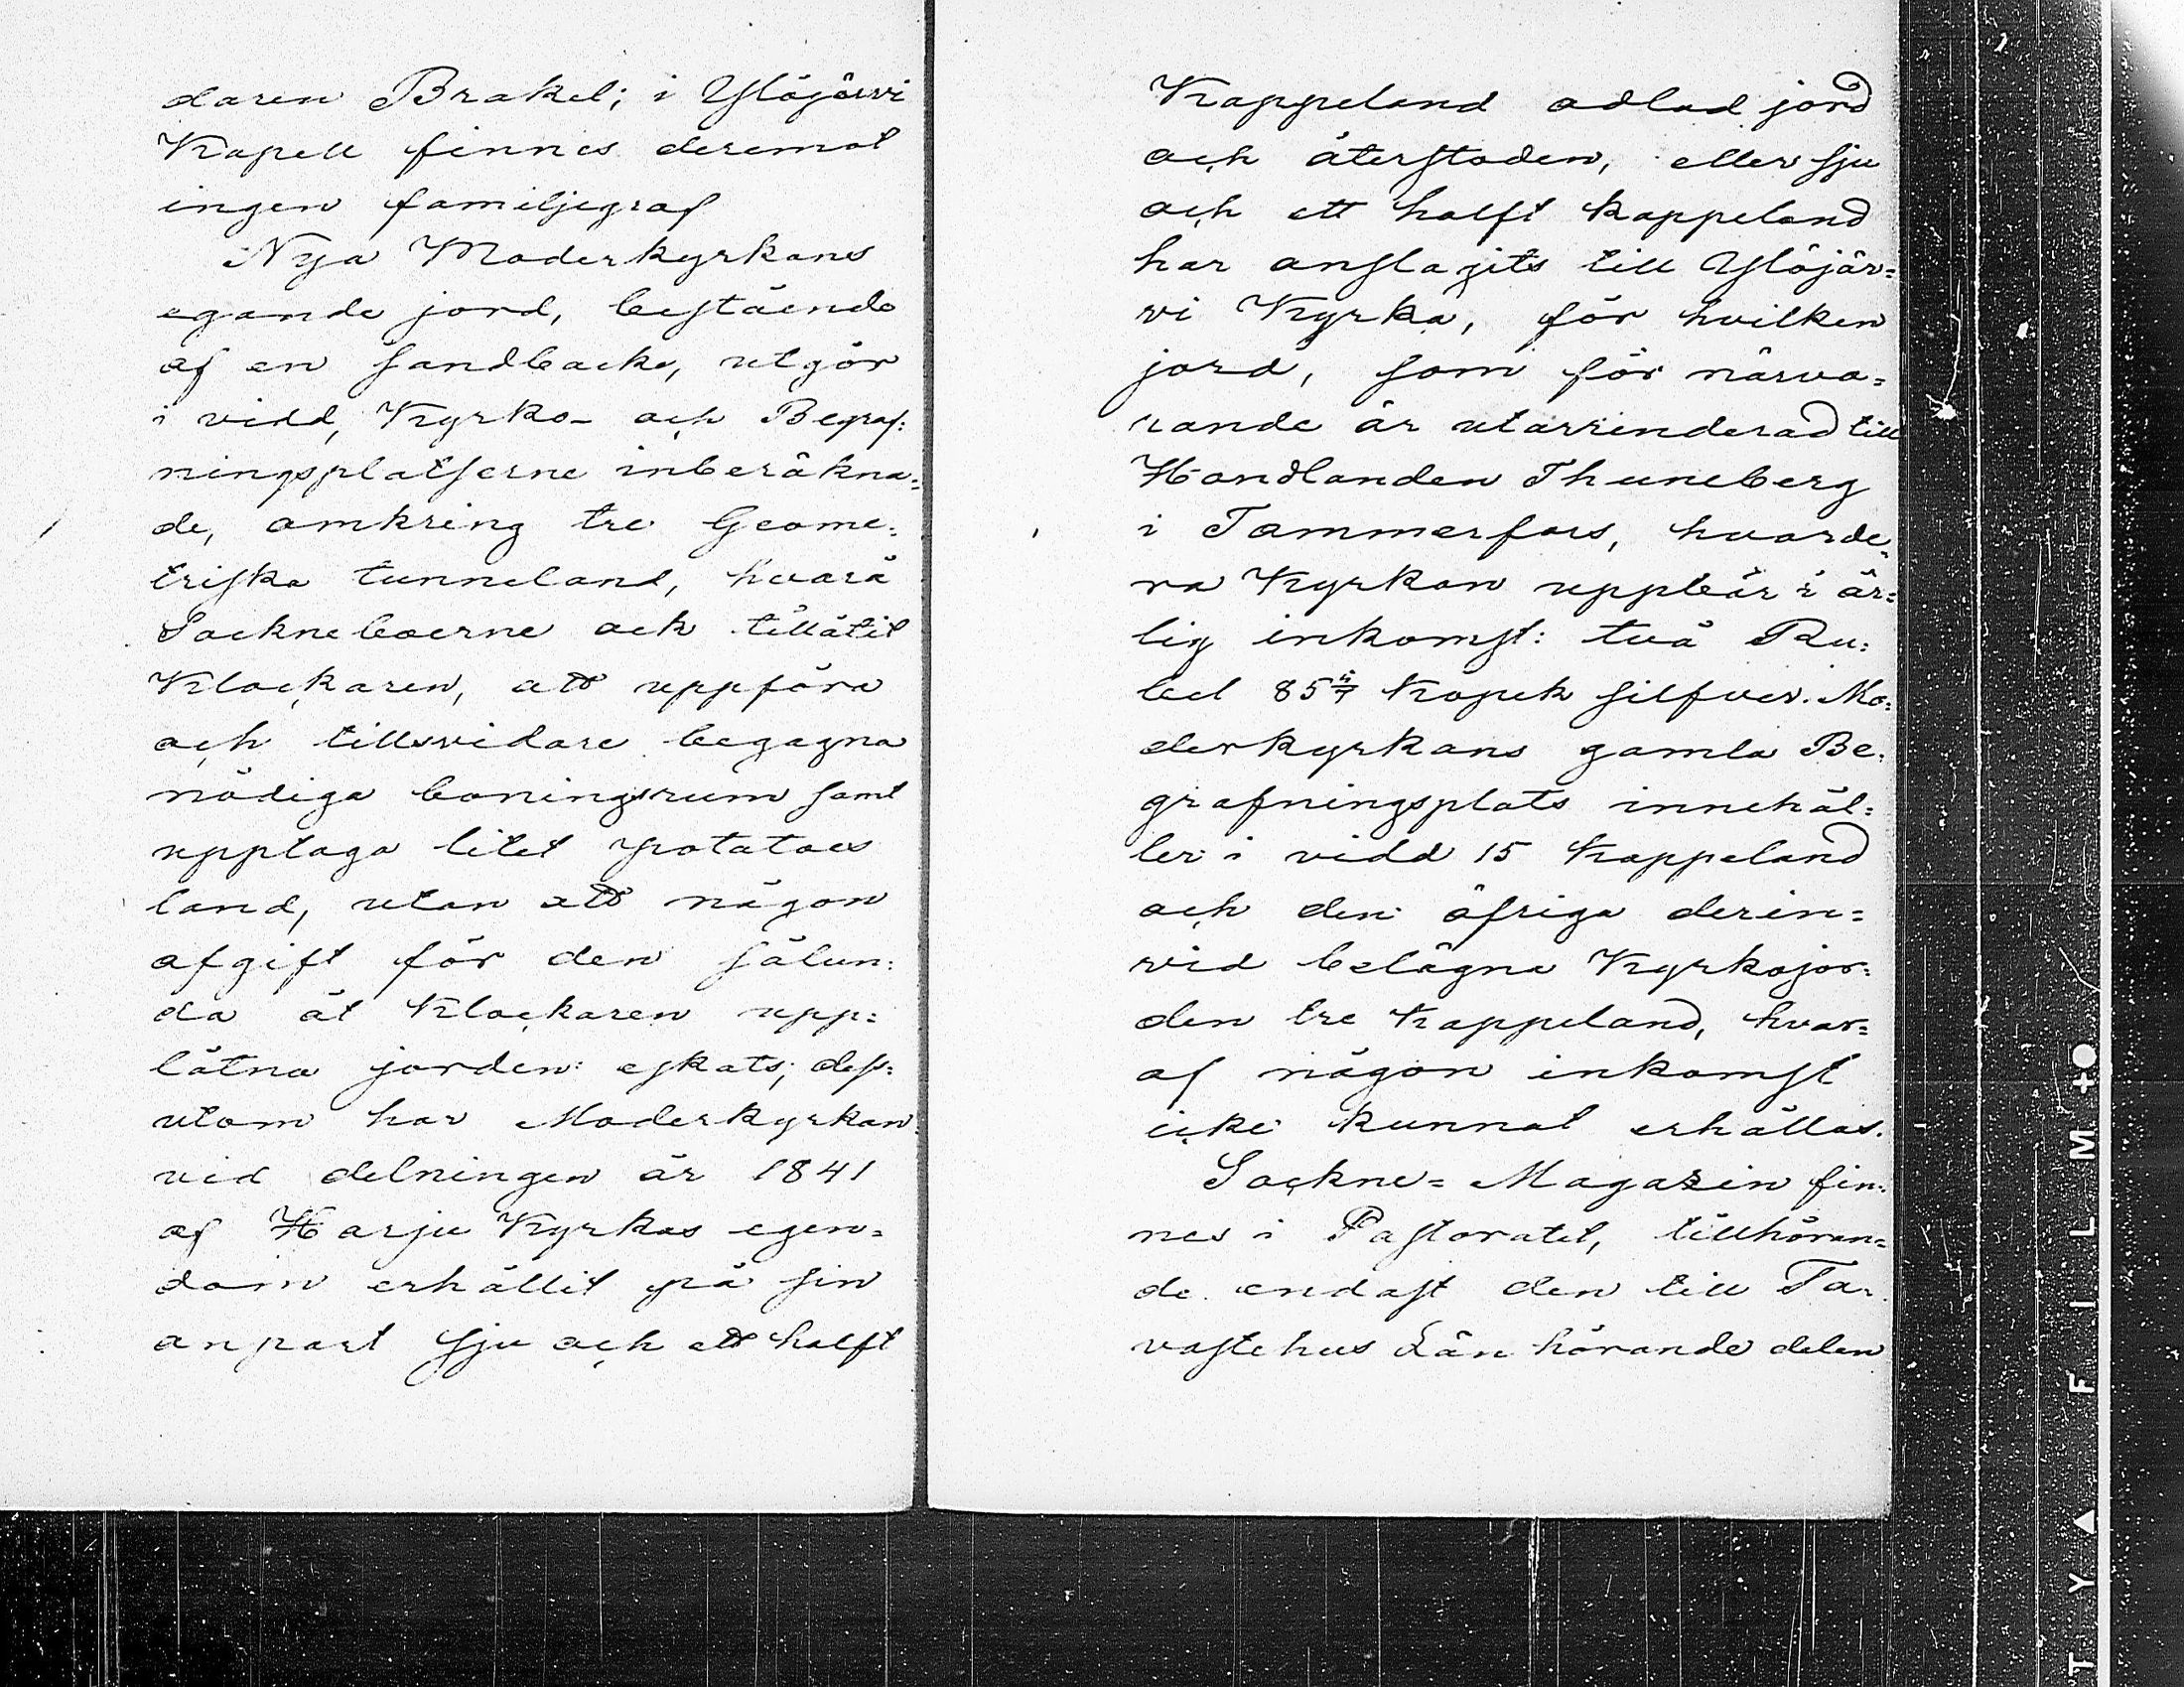 daren Brakel; i Ylöjärvi
Kapell finnes deremot
ingen familjegraf
Nya Moderkyrkans
egande jord, bestående
af en sandbacke, utgör
i vidd, Kyrko- och Begraf=
ningsplatserne inberäkna=
de, omkring tre Geome=
triska tunneland, hvarå
Sockneboerne ock tillåtit
Klockaren, att uppföra
och tillsvidare begagna
nödiga boningsrum samt
upptaga litet potatoes
land, utan att någon
afgift för den sålun=
da åt Klockaren upp=
låtna jorden eskats; dess=
utom har Moderkyrkan
vid delningen år 1841
af Harju Kyrkas egen=
dom erhållit på sin
anpart sju och ett halft
Kappeland odlad jord
och återstoden, eller sju
och ett halft kappeland
har anslagits till Ylöjär=
vi Kyrka, för hvilken
jord, som för närva=
rande är utarrenderad till
Handlanden Thuneberg
i Tammerfors, hvarde=
ra Kyrkan uppbär i år=
lig inkomst: två Ru=
bel 85 4/7 Kopek silfver. Mo=
derkyrkans gamla Be=
grafningsplats innehål=
ler i vidd 15 Kappeland
och den öfriga derin=
vid belägna Kyrkojor=
den tre Kappeland, hvar=
af någon inkomst
icke kunnat erhållas.
Sockne= Magazin fin=
nes i Pastoratet, tillhöran=
de endast den till Ta=
vastehus Län hörande delen
TY▲FILM